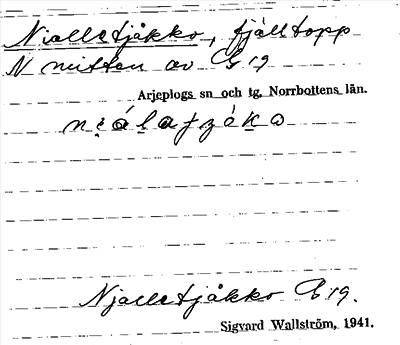 Njalletjåkko, fjälltopp
N mitten av G 19
Arjeplogs sn och tg, Norrbottens län.
Njalletjåkko G 19.
Sigvard Wallström, 1941.